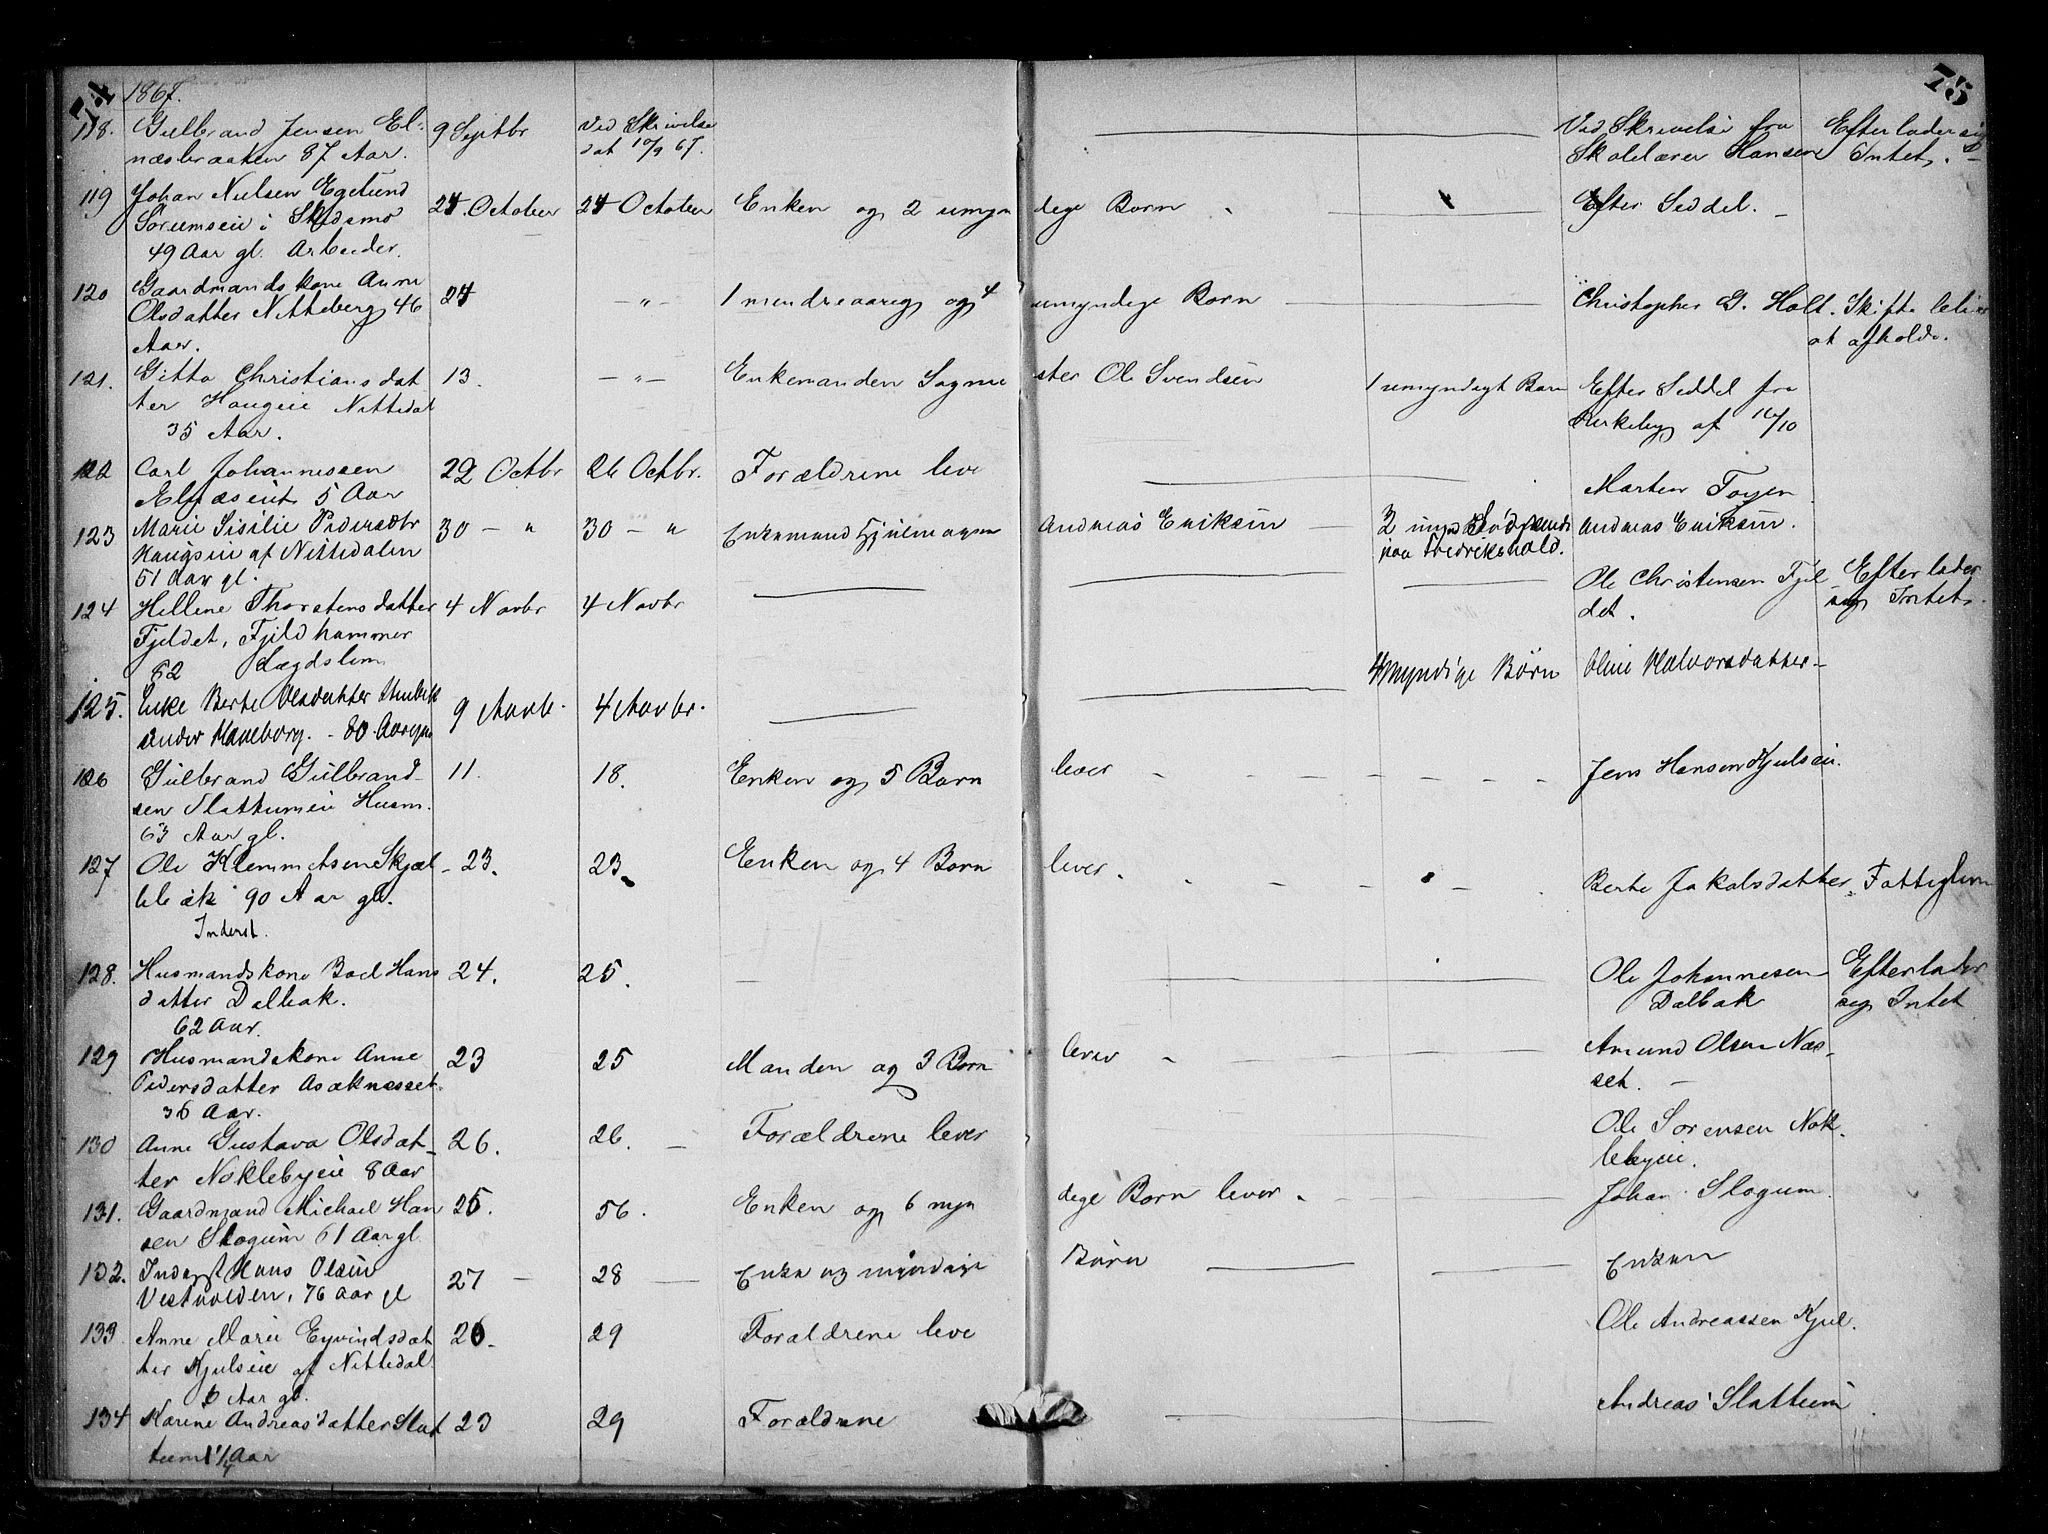 74
1867.
75
118. Gulbrand Jensen El- 9 Septbr Ved Skrivelse Ved Skrivelse fra Efterlader sig
næsbraaten 87 Aar. dat 10/9 67. Skolelærer Hansen Intet. -
119 Johan Nielsen Egelund 24 October 24 October Enken og 2 umyn dige Børn Efter Seddel. -
Sørumseie i Skedsmo
49 Aar gl. Arbeider.
120 Gaardmandskone Anne 24 - " - 1 mendreaarig og 4 umyndige Børn Christopher G. Holt. Skifte
Olsdatter Nitteberg 46 at afholde.
Aar.
121. Gitta Christiansdat 13. - " - Enkemanden Sagme ster Ole Svendsen 1 umyndigt Barn Efter Seddel fra
ter Haugeie Nittedal Kirkeby af 16/10
35 Aar.
122 Carl Johannessen 22 Octbr 26 Octbr. Forældrene leve Marten Toyen
Elnæseiet 5 Aar
123 Marie Sisilie Pedersdtr 30 - " 30 - " Enkemand Hjulmagen Andreas Eriksen 2 Andreas Eriksen.
Haugseie af Nittedalen paa Fredrekshald.
51 Aar gl.
124 Hellene Thorstensdatter 4 Novbr 4 Novbr Ole Christensen Fjel Efterlader
Fjeldet, Fjeldhammer det. sig Intet.
82 Lægdslem
125. Enke Berte Olsdatter 9 Novb. 4 Novbr. 4 Myndige Børn Oline Halvorsdatter -
under Haneborg. - 80 Aar
126 Gulbrand Gulbrand- 11. 18. Enken og 5 Børn lever Jens Hansen Kjulseie.
sen Slattumeie Husm.
63 Aar gl.
127 Ole Klemmetsen Skjæt 23. 23. Enken og 4 Børn lever. Berte Jakobsdatter Fattiglem
lebæk 90 Aar gl.
Inderst.
128. Husmandskone Boel Hans 24. 25. Ole Johannesen Efterlader
datter Dalbak. Dalbak sig Intet
62 Aar.
129 Husmandskone Anne 23 25 Manden og 3 Børn lever Amund Olsen Næs-
Pedersdatter Asaknesset. set. -
36 Aar.
130 Anne Gustava Olsdat- 26. 26. Forældrene lever Ole Sorensen Nok-
ter Noklebyeie 8 Aar lebyeie.
131. Gaardmand Michael Han 25. 56. Enken og 6 myn dige Børn lever. Johan Skogum.
sen Skogum 61 Aar gl
132. Inderst Hans Olsen 27 - 28 Enke og myndige Børn Enken
Vestvolden, 76 Aar gl
133 Anne Marie Eyvindsdat 26. 29 Forældrene leve Ole Andreassen Kjul.
ter Kjulseie af Nittedal
6 Aar gl.
134 Karine Andreasdatter Slat 23 29 Forældrene Andreas Slattum
tum 1 1/4 Aar